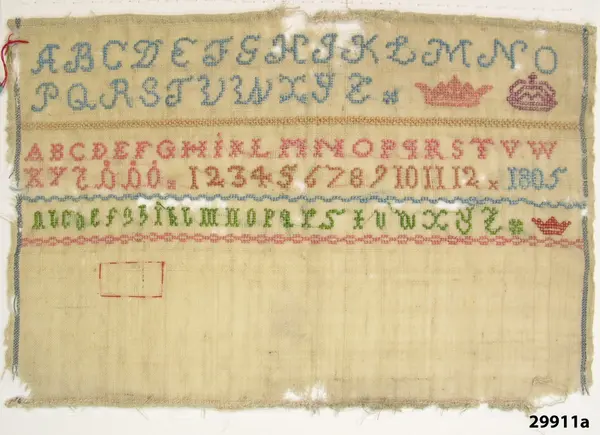 ABCDEFGHIJKLMNO
PQRSTUVWXYZ
ABCDEFGHIKLMNOPQRSTVW
XYZÅÄÖ 1 2 3 4 5 6 7 8 9 10 11 12 × 1805
abcdefghiklmnopqrstuvwxyz
29911a